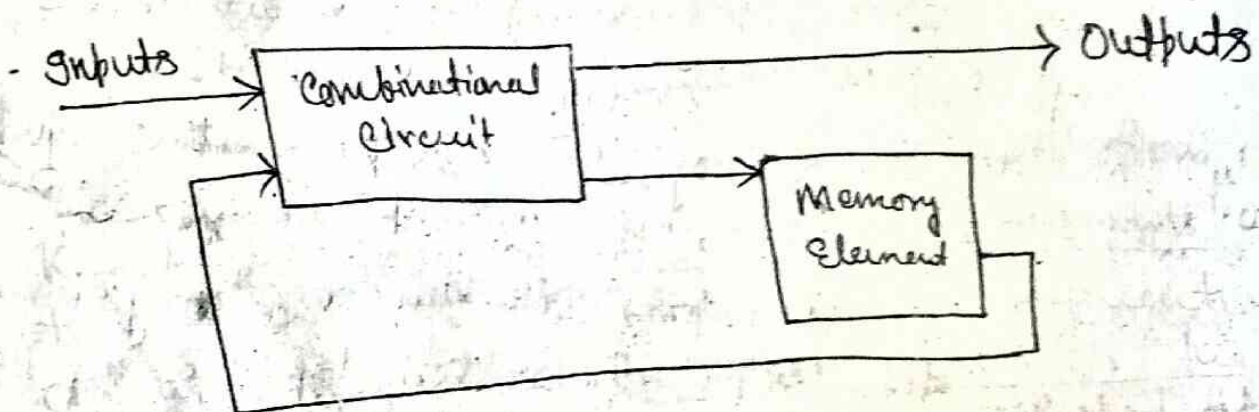 - Inputs
Combinational
Circuit
Outputs
Memory
Element